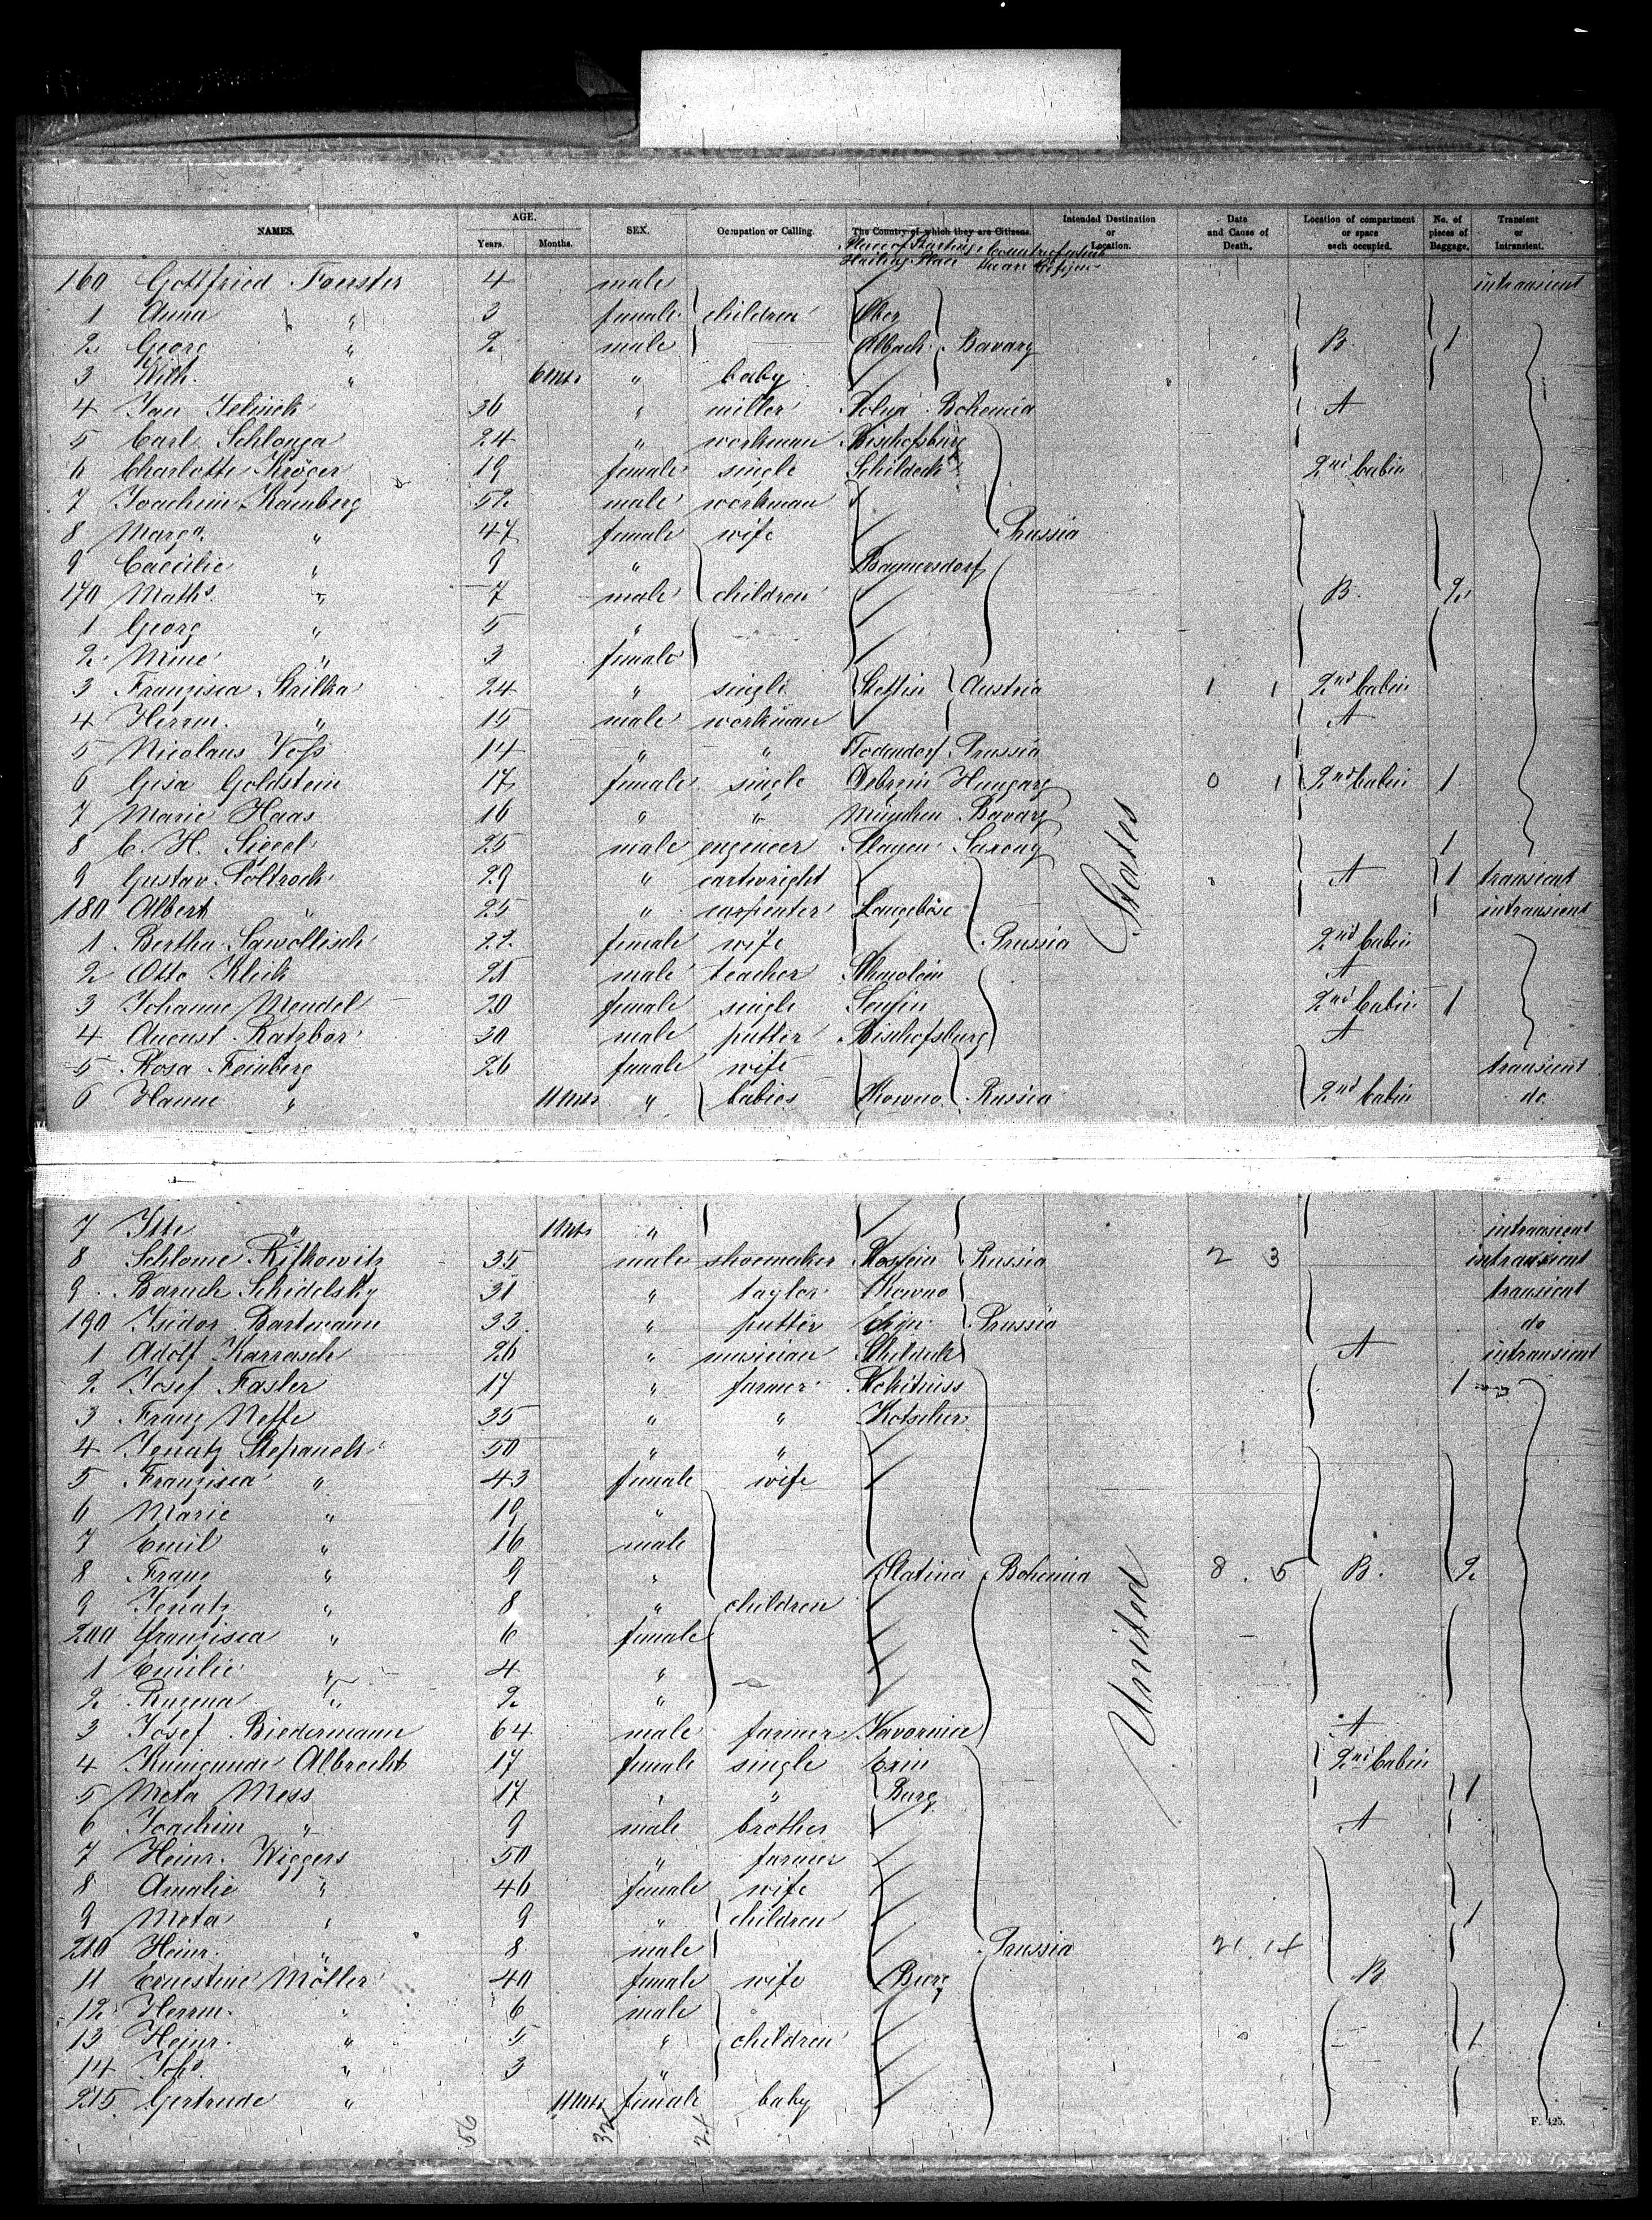 NAMES. AGE. Years. Months. SEX. Occupation or Calling. The Country of which they are Citizens. Intended Destination or Location. Date and Cause of Death. Location of compartment or space each occupied. No. of pieces of Baggage. Transient or Intransient.
Place of Starting Country of which
Hailing Place
160 Gottfried Foerster 4 male intransient
1 Anna " 3 female children Ober
2 Georg " 2 male Albach Bavary B. 1
3 Wilh. " 6 Mts " baby
4 Jan Jelinek 36 " miller Bohemia A
5 Carl Schlonga 24 " workman Bischofsburg
6 Charlotte Kröger 19 female single Schildeck 2nd Cabin
7 Joachim Kamberg 52 male workman
8 Marga. " 47 female wife Prussia
9 Caecilie " 9 " Baynersdorf
170 Maths. " 7 male children B. 2
1 Georg " 5 "
2 Mine " 3 female
3 Franzisca Strilka 24 " single Stettin Austria 1 1 2nd Cabin
4 Herrm. " 15 male workman A
5 Nicolaus Voss 14 " " Todendorf Prussia
6 Gisa Goldstein 17 female single Debrzin Hungary 0 1 2nd Cabin 1
7 Marie Haas 16 " " München Bavary
8 C. H. Siegel 25 male engineer Saxony 1
9 Gustav Poltrock 29 " cartwright A 1 transient
180 Albert " 25 " carpenter Langeböse intransient
1 Bertha Sawollisch 22 female wife Prussia 2nd Cabin
2 Otto Klick 21 male teacher A
3 Johanne Mendel 20 female single 2nd Cabin 1
4 August Ratzbor 30 male putter Bischofsburg A
5 Rosa Feinberg 26 female wife transient
6 Hanne " 11 Mts " babies Kowno Russia 2nd Cabin do
States
7 Itte " 1 Mts " intransient
8 Schlome Rifkowitz 35 male shoemaker Russia 2 3 intransient
9 Baruch Schidelsky 31 " taylor Kowno transient
190 Isidor Bartmann 33 " putter Prussia do
1 Adolf Karrasch 26 " musician Schildeck A intransient
2 Josef Fasler 17 " farmer 1
3 Franz Neffe 35 " " Kotscher
4 Ignatz Stepanek 50 " "
5 Franzisca " 43 female wife
6 Marie " 19 "
7 Emil " 16 male
8 Franz " 9 " Slatina Bohemia 8 . 5 B. 2
9 Ignatz " 8 " children
200 Franzisca " 6 female
1 Emilie " 4 "
2 Rugena " 2 "
3 Josef Biedermann 64 male farmer Javornic A
4 Kunigunde Albrecht 17 female single Exin 2nd Cabin
5 Meta Mess 17 " " Burg 1
6 Joachim " 9 male brother A
7 Heinr. Wiggers 50 " farmer
8 Amalie " 46 female wife
9 Meta " 9 " children 1
210 Heinr. " 8 male Prussia 21 . 14
11 Ernestine Möller 40 female wife B
12 Herrm. " 6 male
13 Heinr. " 5 " children 1
14 Johs. " 3 "
215 Gertrude " 11 Mts female baby
United
56 32 24
F. 425.